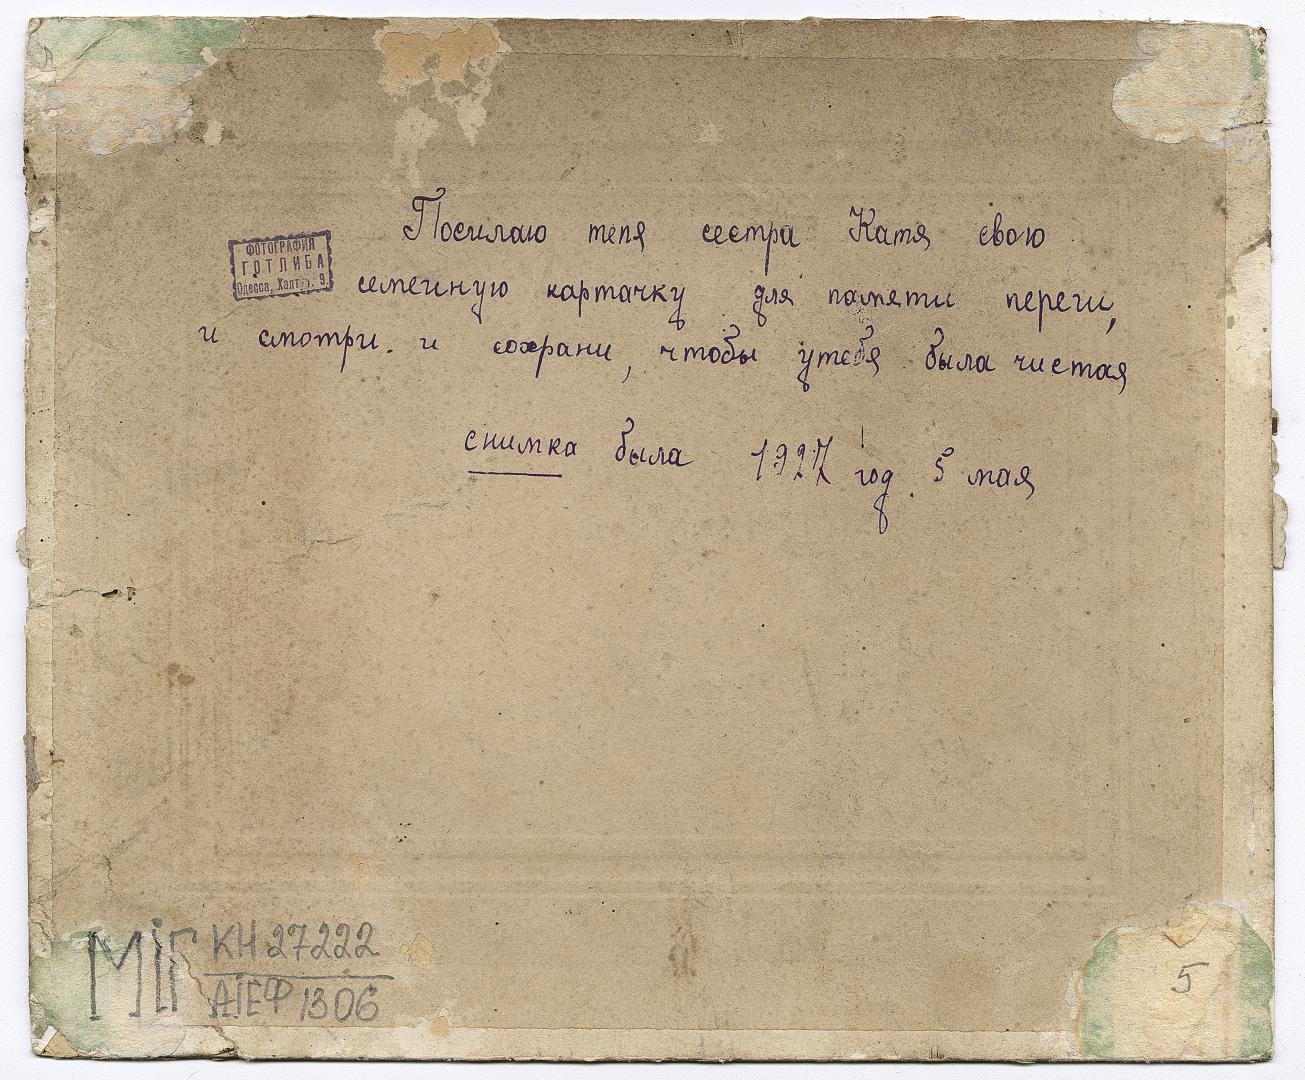 Посилаю тепя сестра Катя свою
ФОТОГРАФИЯ
ГОТЛИБА
Одесса, Халтур. 9
семейную картачку для памяти переги,
и смотри. и сохрани, чтобы утебя была чистая
снимка была 1927 год. 5 мая
МіГ КН 27222
АІЕФ 1306
5